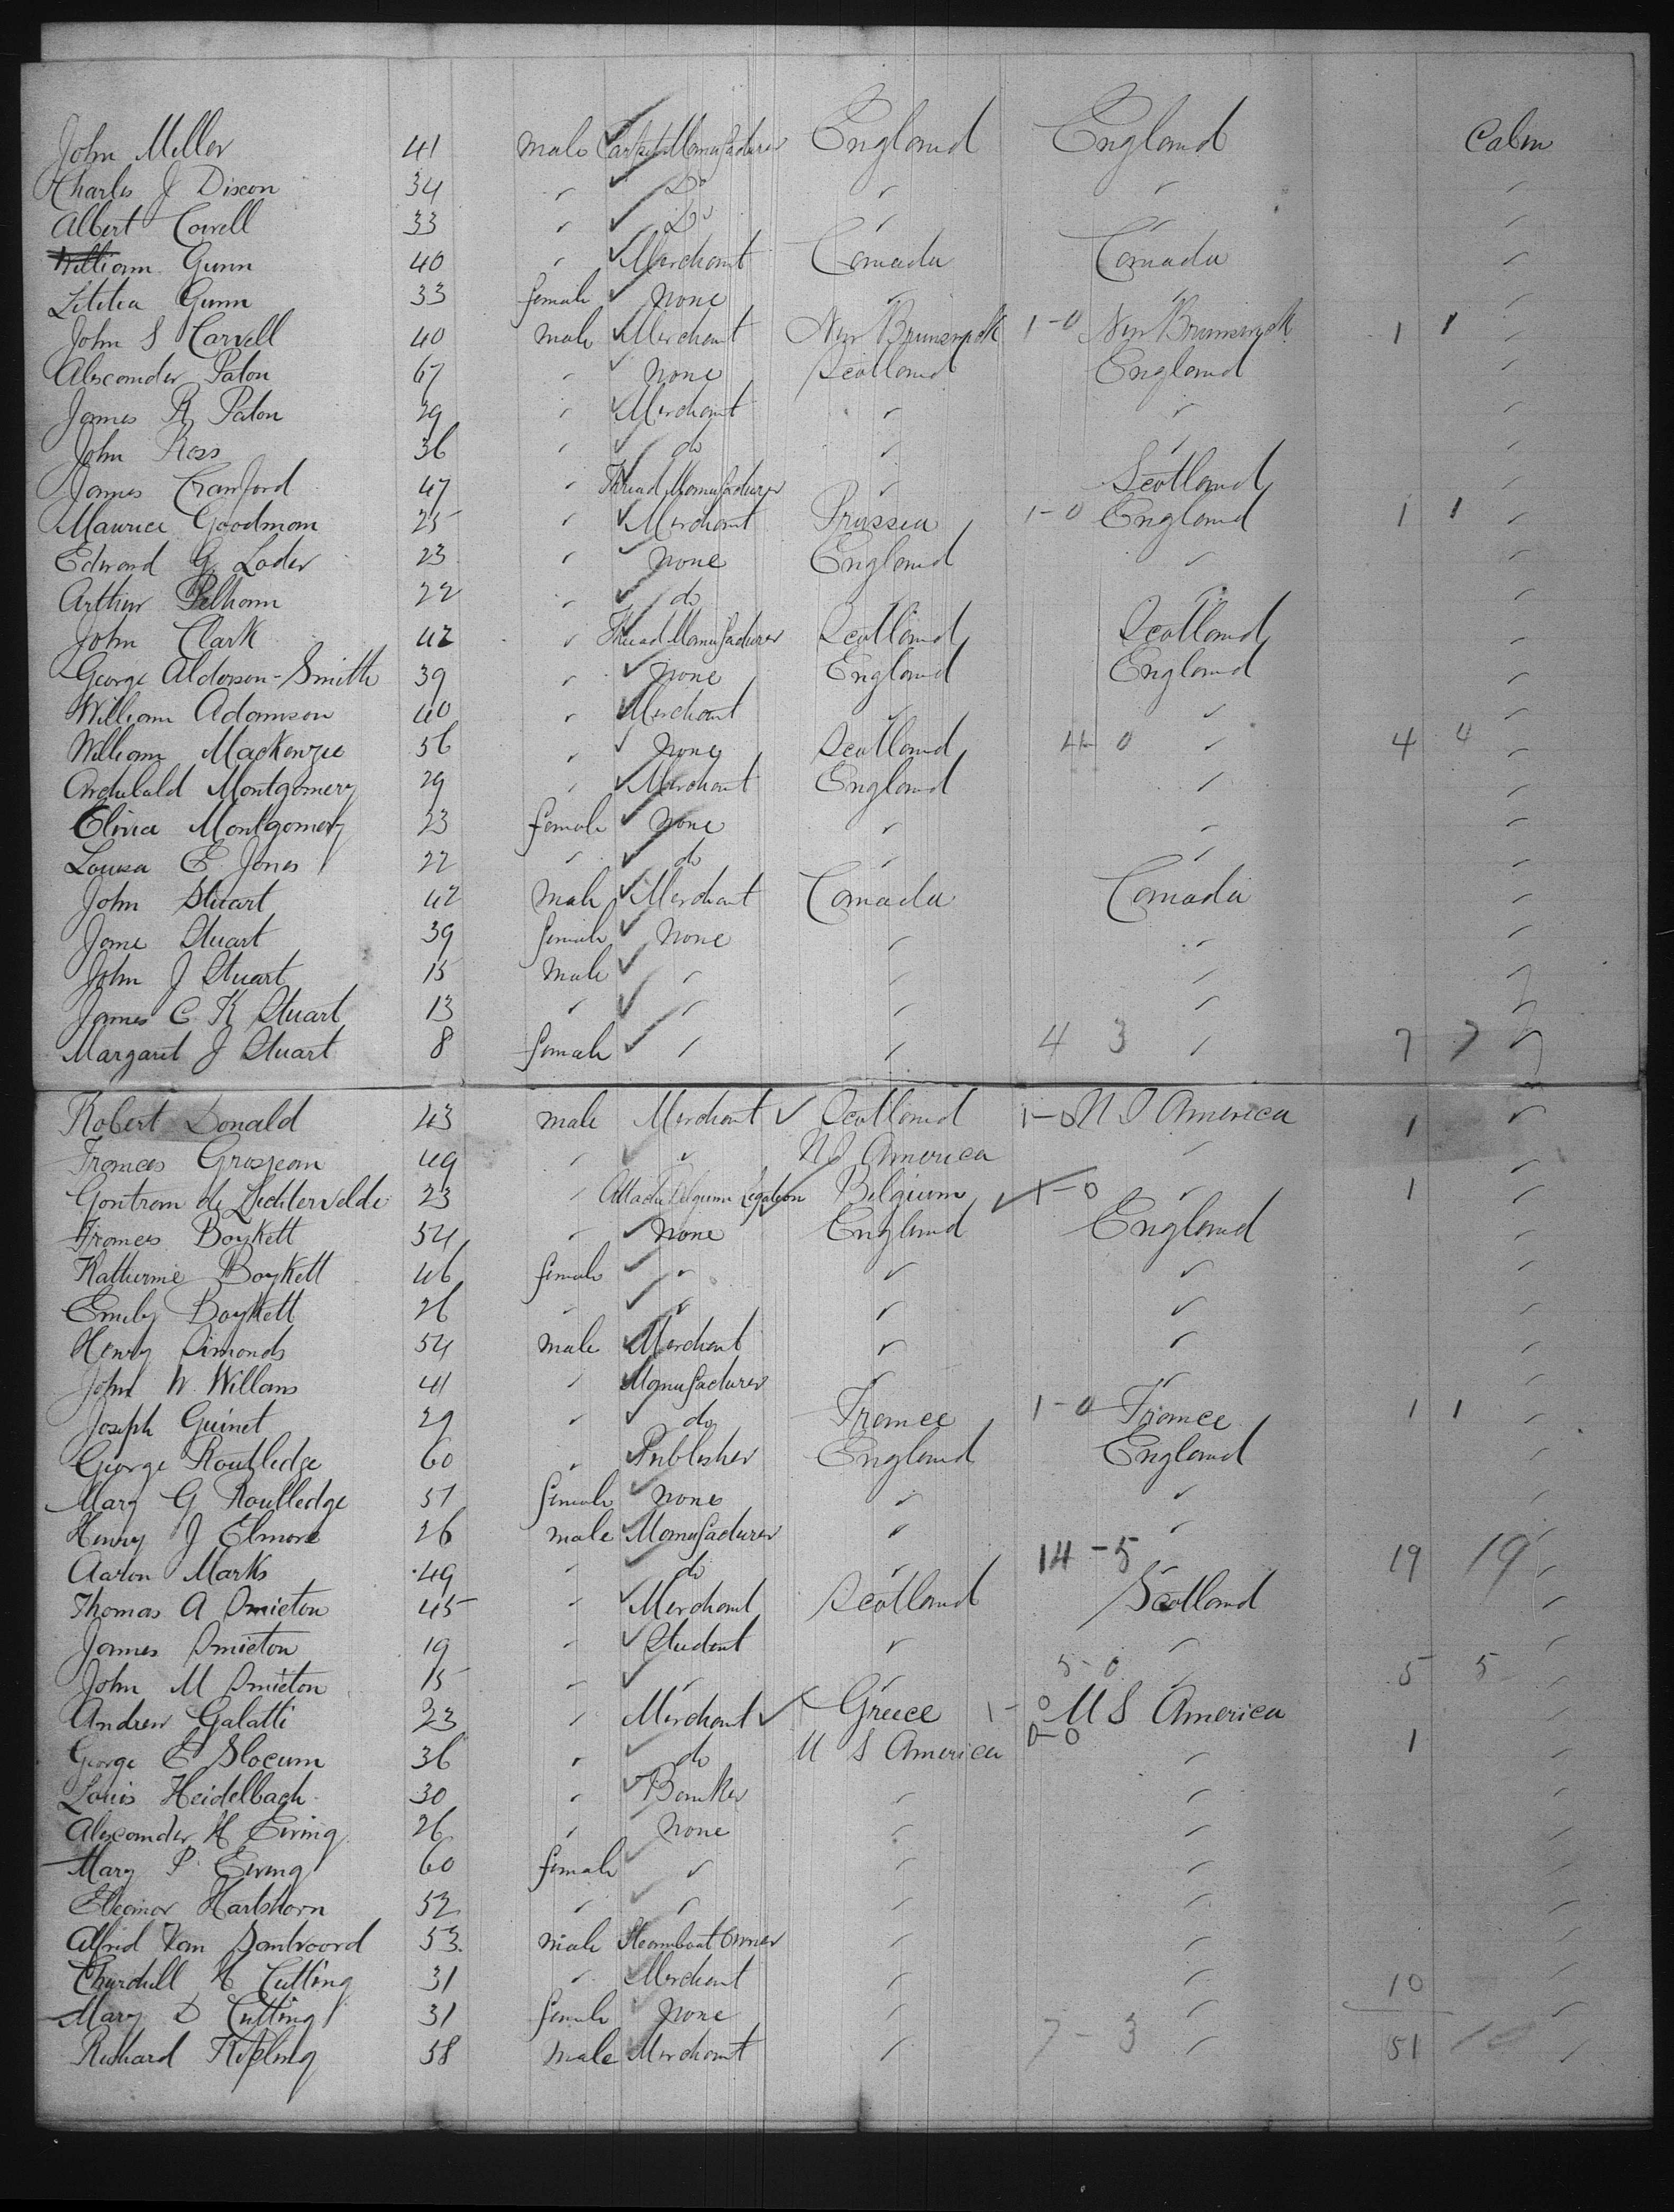 John Miller 41 male Carpet Manufacturer England England Cabin
Charles J Dixon 34 " Do " " "
Albert Cowell 33 " Do " " "
William Gunn 40 " Merchant Canada Canada "
Letitia Gunn 33 female none " " "
John S Carvell 40 male Merchant New Brunswick 1-0 New Brunswick 1 1 "
Alexander Paton 67 " none Scotland England "
James R Paton 29 " Merchant " " "
John Ross 36 " do " " "
James Crawford 47 " Thread Manufacturer " Scotland "
Maurice Goodman 25 " Merchant Prussia 1-0 England 1 1 "
Edward G Loder 23 " none England " "
Arthur Pelham 22 " do " " "
John Clark 42 " Thread Manufacturer Scotland Scotland "
George Alderson-Smith 39 " none England England "
William Adamson 40 " Merchant " " "
William MacKenzie 56 " none Scotland 4-0 " 4 4 "
Archibald Montgomery 29 " Merchant England " "
Olivia Montgomery 23 female none " " "
Louisa E Jones 22 " do " " "
John Stuart 42 male Merchant Canada Canada "
Jane Stuart 39 female none " " "
John J Stuart 15 male " " " "
James C K Stuart 13 " " " " "
Margaret J Stuart 8 female " " 4 3 " 7 7 "
Robert Donald 43 male Merchant Scotland 1-0 U S America 1 "
Frances Grosjean 49 " " U S America " "
Gontran de Lichtervelde 23 " Attaché Belgium Legation Belgium 1-0 " 1 "
Frances Boykett 54 " none England England "
Katherine Boykett 46 female " " " "
Emily Boykett 26 " " " " "
Henry Simonds 54 male Merchant " " "
John W Willans 41 " Manufacturer " " "
Joseph Guinet 29 " do France 1-0 France 1 1 "
George Routledge 60 " Publisher England England "
Mary G Routledge 51 female none " " "
Henry J Elmore 26 male Manufacturer " " "
Aaron Marks 49 " do " 14-5 " 19 19 "
Thomas A Smieton 45 " Merchant Scotland Scotland "
James Smieton 19 " Student " " "
John M Smieton 15 " " " 5-0 " 5 5 "
Andrew Galatti 23 " Merchant Greece 1-0 U S America "
George E Slocum 36 " do U S America 0-0 " 1 "
Louis Heidelbach 30 " Banker " " "
Alexander H Ewing 26 " none " " "
Mary P Ewing 60 female " " " "
Eleanor Hartshorn 52 " " " " "
Alfred Van Santvoord 53 male Steamboat Owner " " "
Churchill H Cutting 31 " Merchant " " 10 "
Mary D Cutting 31 female none " " "
Richard Kipling 58 male Merchant " 7-3 " 51 "